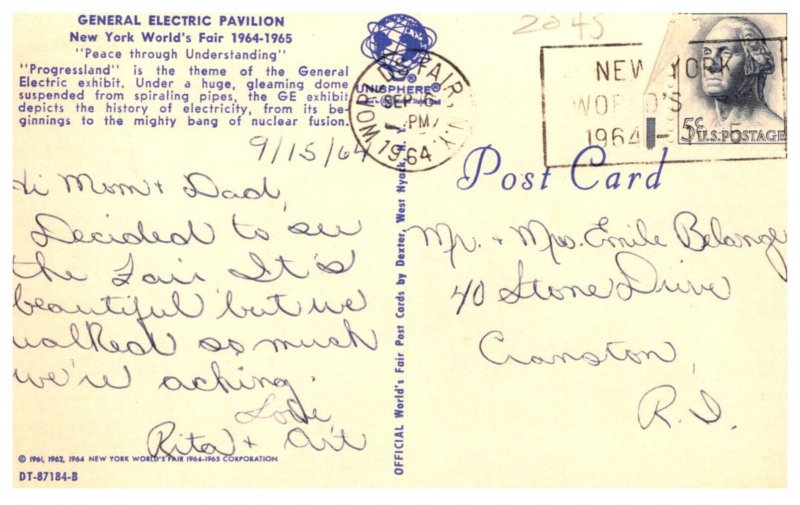 GENERAL ELECTRIC PAVILION
New York World's Fair 1964-1965
"Peace through Understanding"
"Progressland" is the theme of the General
Electric exhibit. Under a huge, gleaming dome
suspended from spiraling pipes, the GE exhibit
depicts the history of electricity, from its be-
ginnings to the mighty bang of nuclear fusion.
9/15/64
Hi Mom + Dad,
Decided to see
the Fair. It's
beautiful but we
walked so much
we're aching.
Love,
Rita + Art
© 1961, 1962, 1964 NEW YORK WORLD'S FAIR 1964-1965 CORPORATION
DT-87184-B
UNISPHERE®
WORLDS FAIR, N.Y.
SEP 16
PM
1964
OFFICIAL World's Fair Post Cards by Dexter, West Nyack, N. Y.
2045
NEW YORK
WORLD'S
1964 - 5
5c U.S. POSTAGE
Post Card
Mr. + Mrs. Emile Belange
40 Stone Drive
Cranston,
R.I.